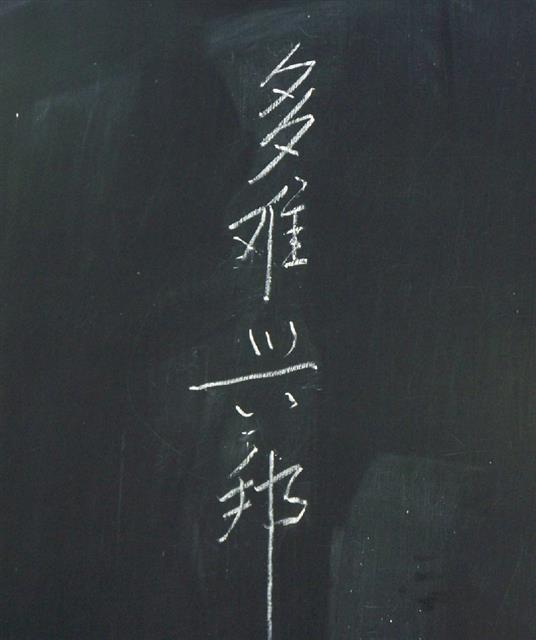 多难兴邦